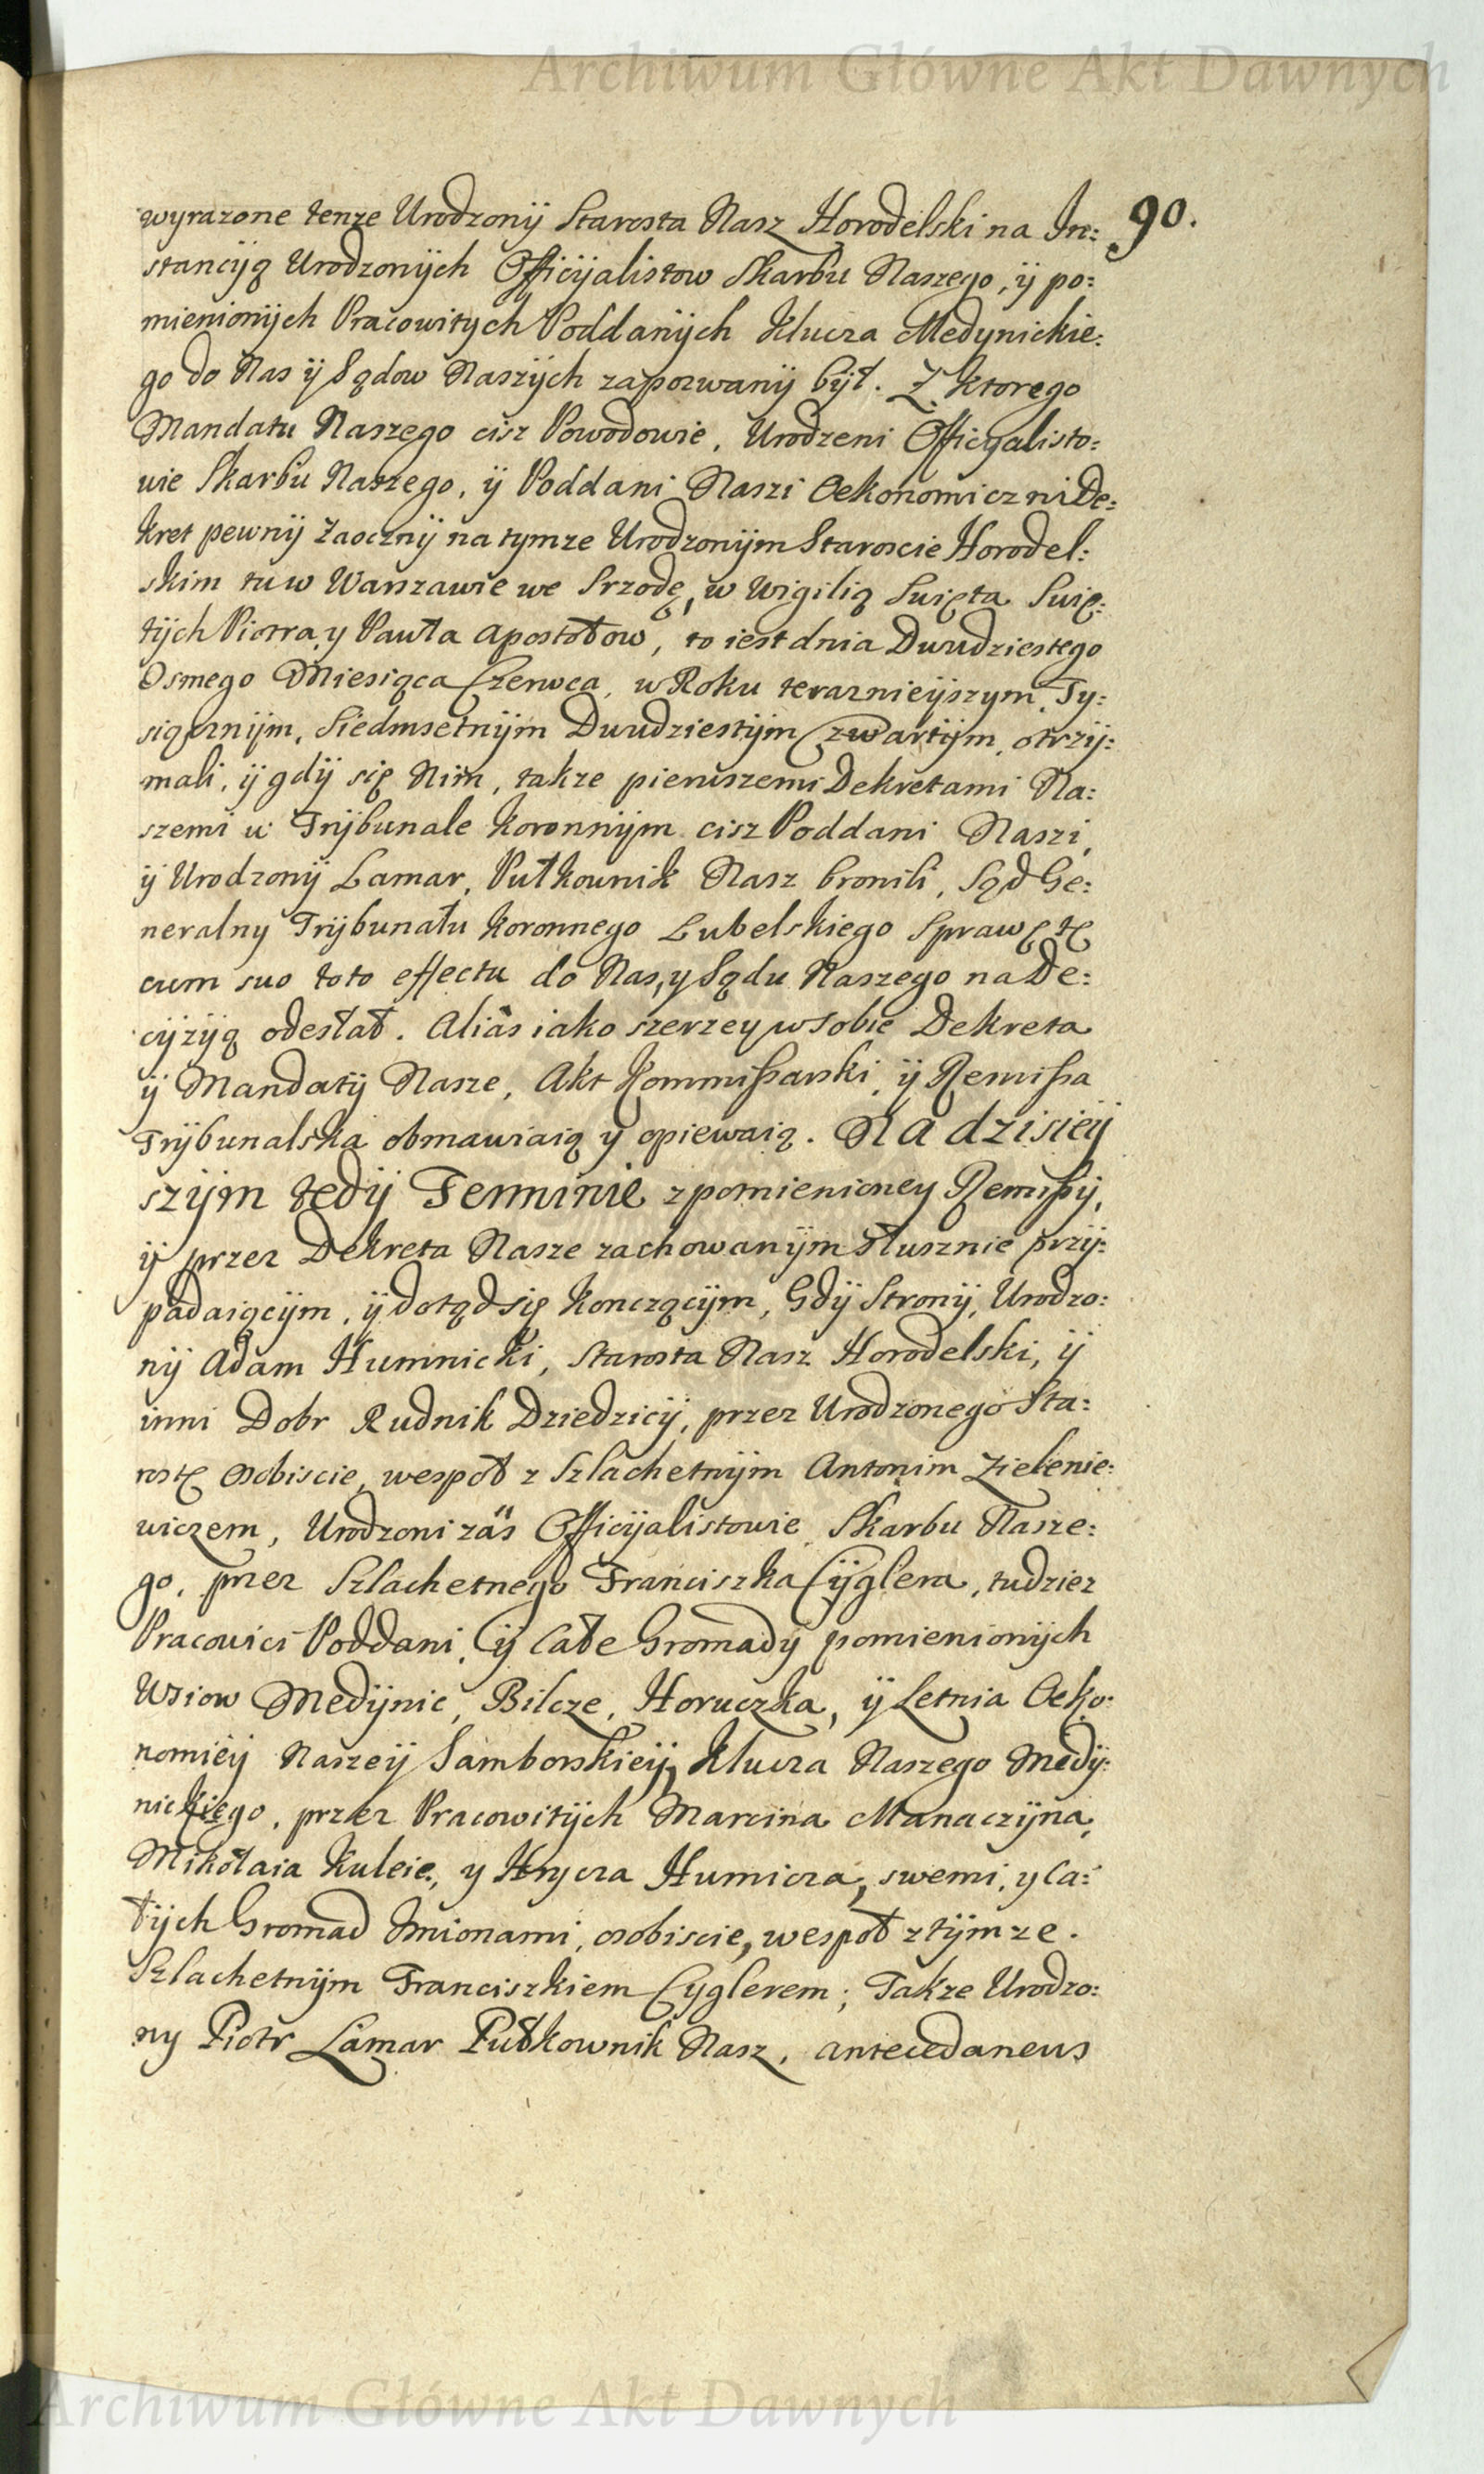 Archiwum Główne Akt Dawnych
90.
wyrazone tenze Urodzonÿ Starosta Nasz Horodelski na In:
stancÿą Urodzonÿch Officÿalistow Skarbu Naszego, ÿ po:
mienionÿch Pracowitych Poddanÿch Klucza Medynickie:
go do Nas ÿ Sądow Naszÿch zapozwanÿ bÿł. Z ktorego
Mandatu Naszego cisz Powodowie, Urodzeni Officyalisto:
wie Skarbu Naszego, ÿ Poddani Naszi Oekonomiczni De:
kret pewnÿ Zaocznÿ na tymze Urodzonÿm Staroscie Horodel:
skim tu w Warszawie we Srzodę, w Wigilią Swięta Swię:
tÿch Piotra, y Pawła Apostołow, to iest dnia Dwudziestego
Osmego Miesiąca Czerwca, w Roku teraznieÿszym, Ty:
siącznÿm, Siedmsetnÿm Dwudziestÿm Czwartÿm, otrzÿ:
mali, ÿ gdÿ się Nim, takze pierwszemi Dekretami Na:
szemi w Trÿbunale Koronnÿm cisz Poddani Naszi,
ÿ Urodzonÿ Lamar, Pułkownik Nasz bronili, Sąd Ge:
neralny Trÿbunału Koronnego Lubelskiego Sprawę tę
cum suo toto effectu do Nas, y Sądu Naszego na De:
cÿzÿą odesłał. Aliàs iako szerzey w sobie Dekreta
ÿ Mandatÿ Nasze, Akt Kommißarski, ÿ Remißa
Trÿbunalska obmawiaią y opiewaią. Na dzisieÿ
szÿm tedÿ Terminie z pomienioney Remißÿ,
ÿ przez Dekreta Nasze zachowanÿm słusznie przÿ:
padaiącÿm, ÿ dotąd się konczącÿm, Gdÿ Stronÿ, Urodzo:
nÿ Adam Humnicki, Starosta Nasz Horodelski, ÿ
inni Dobr Rudnik Dziedzicÿ, przez Urodzonego Sta:
rostę osobiscie, wespoł z Szlachetnÿm Antonim Zielenie:
wiczem, Urodzoni zás Officÿalistowie Skarbu Nasze:
go, przez Szlachetnego Franciszka Cÿglera, tudziez
Pracowici Poddani, ÿ Całe Gromadÿ pomienionÿch
Wsiow Medÿnic, Bilcze, Horuczka, ÿ Letnia Oeko:
nomiëÿ Naszeÿ Samborskieÿ, Klucza Naszego Medÿ:
nickiego, przez Pracowitÿch Marcina Manaczÿna,
Mikołaia Kuleie, y Hrycza Humicza, swemi, y Ca:
łÿch Gromad Imionami, osobiscie, wespoł z tÿmze
Szlachetnÿm Franciszkiem Cyglerem; Takze Urodzo:
ny Piotr Lamar Pułkownik Nasz, antecedaneus
Archiwum Główne Akt Dawnych